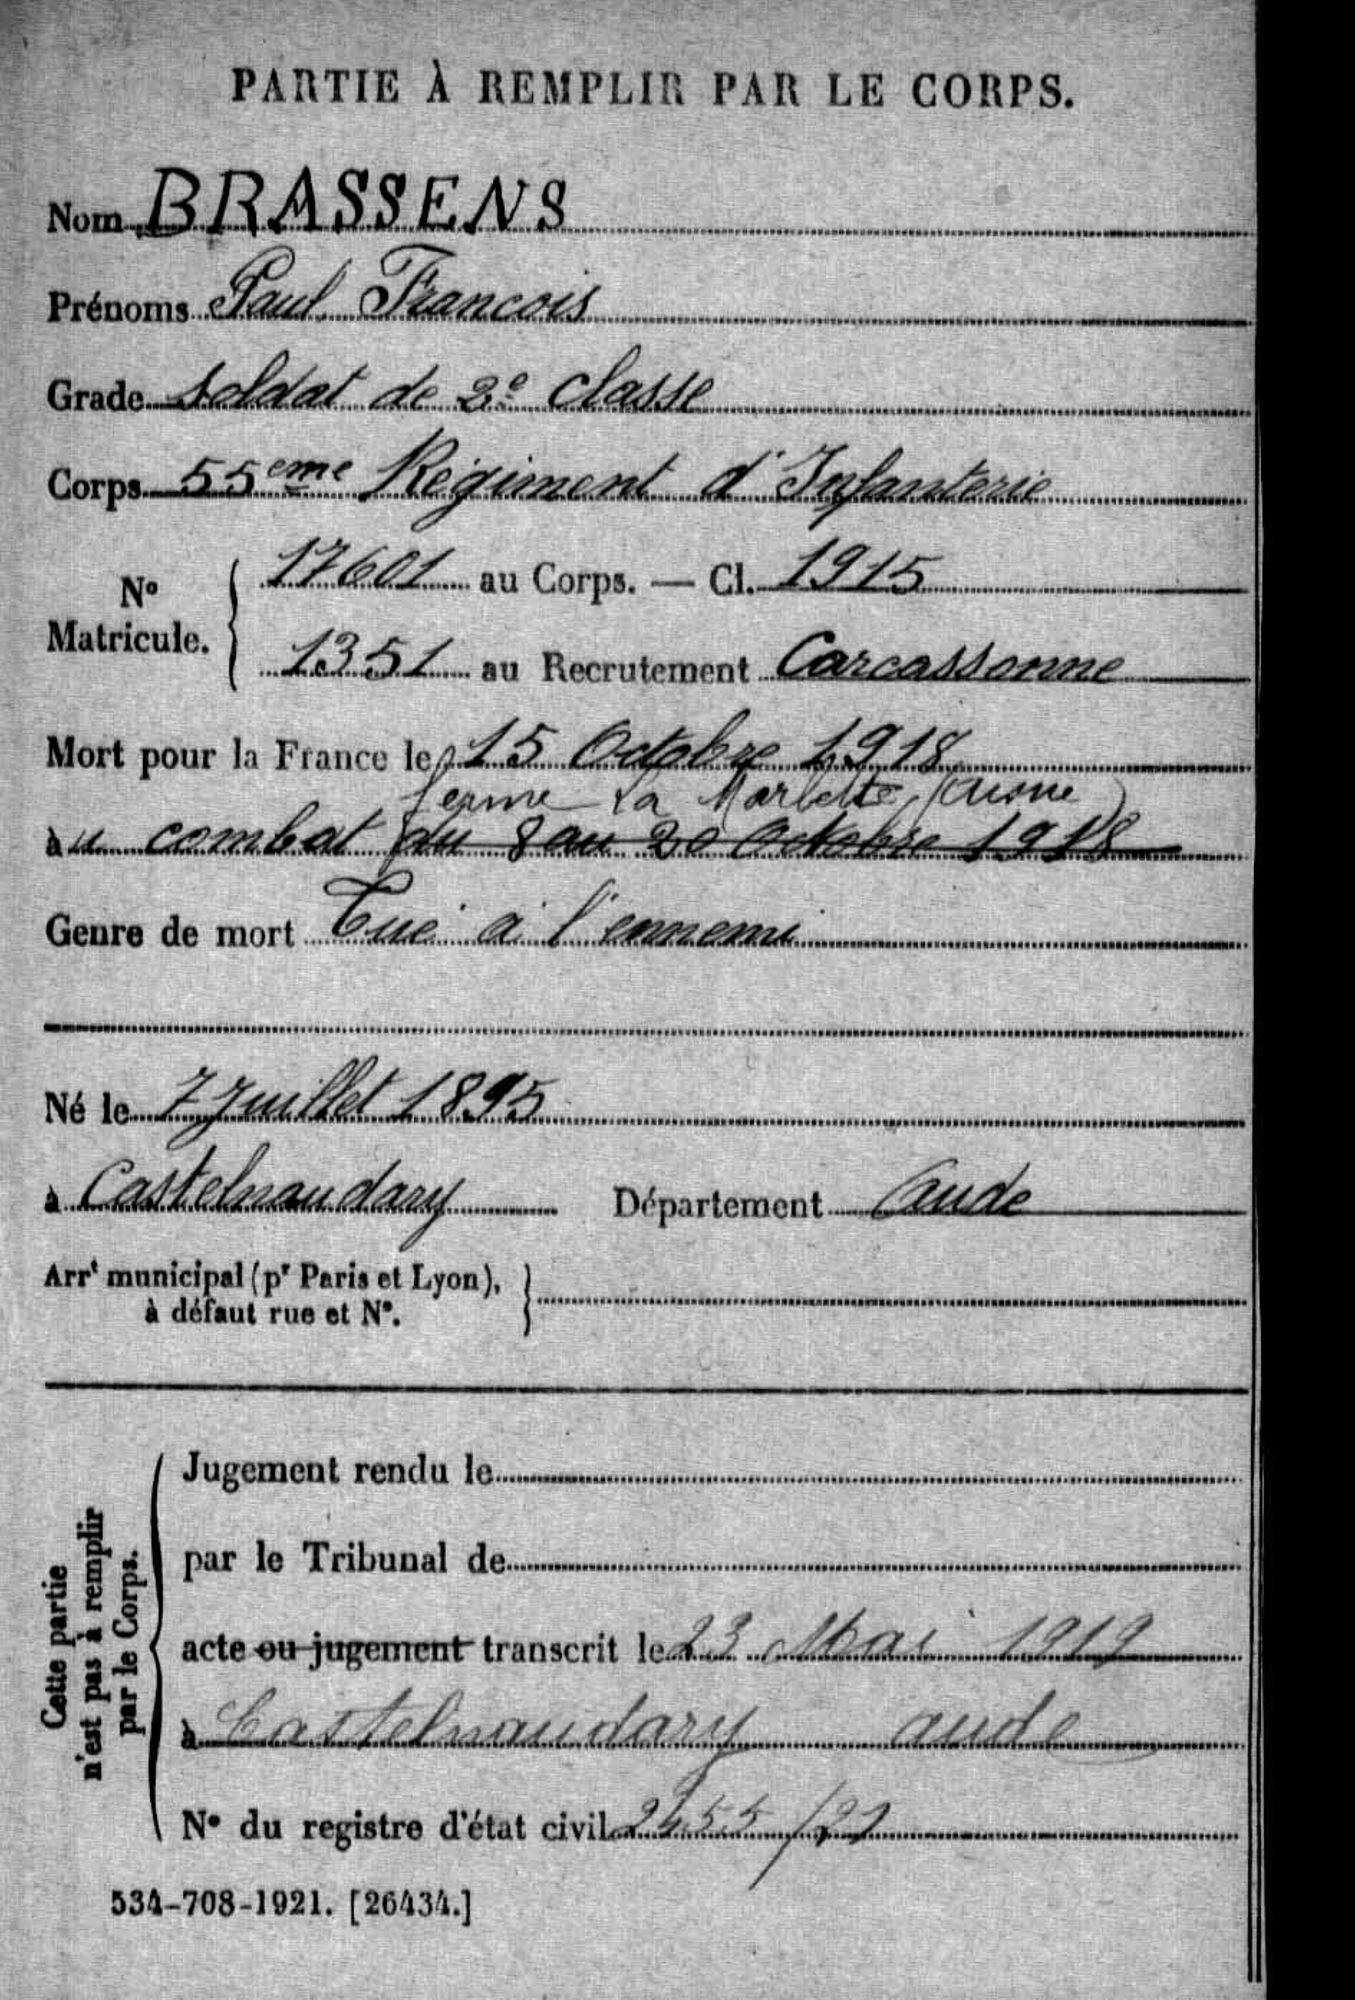 PARTIE À REMPLIR PAR LE CORPS.
Nom BRASSENS
Prénoms Paul, Francois
Grade Soldat de 2e classe
Corps 55eme Régiment d'Infanterie
No Matricule. { 17601 au Corps. — Cl. 1915
1351 au Recrutement Carcassonne
Mort pour la France le 15 Octobre 1918
ferme La Marlette (Aisne)
àu combat du 8 au 20 Octobre 1918
Genre de mort Tué à l'ennemi
Né le 7 Juillet 1895
à Castelnaudary Département Aude
Arrt municipal (pr Paris et Lyon),
à défaut rue et No.
Cette partie n'est pas à remplir par le Corps.
Jugement rendu le
par le Tribunal de
acte ou jugement transcrit le 23 Mai 1919
à Castelnaudary aude
No du registre d'état civil 2455/21
534-708-1921. [26434.]